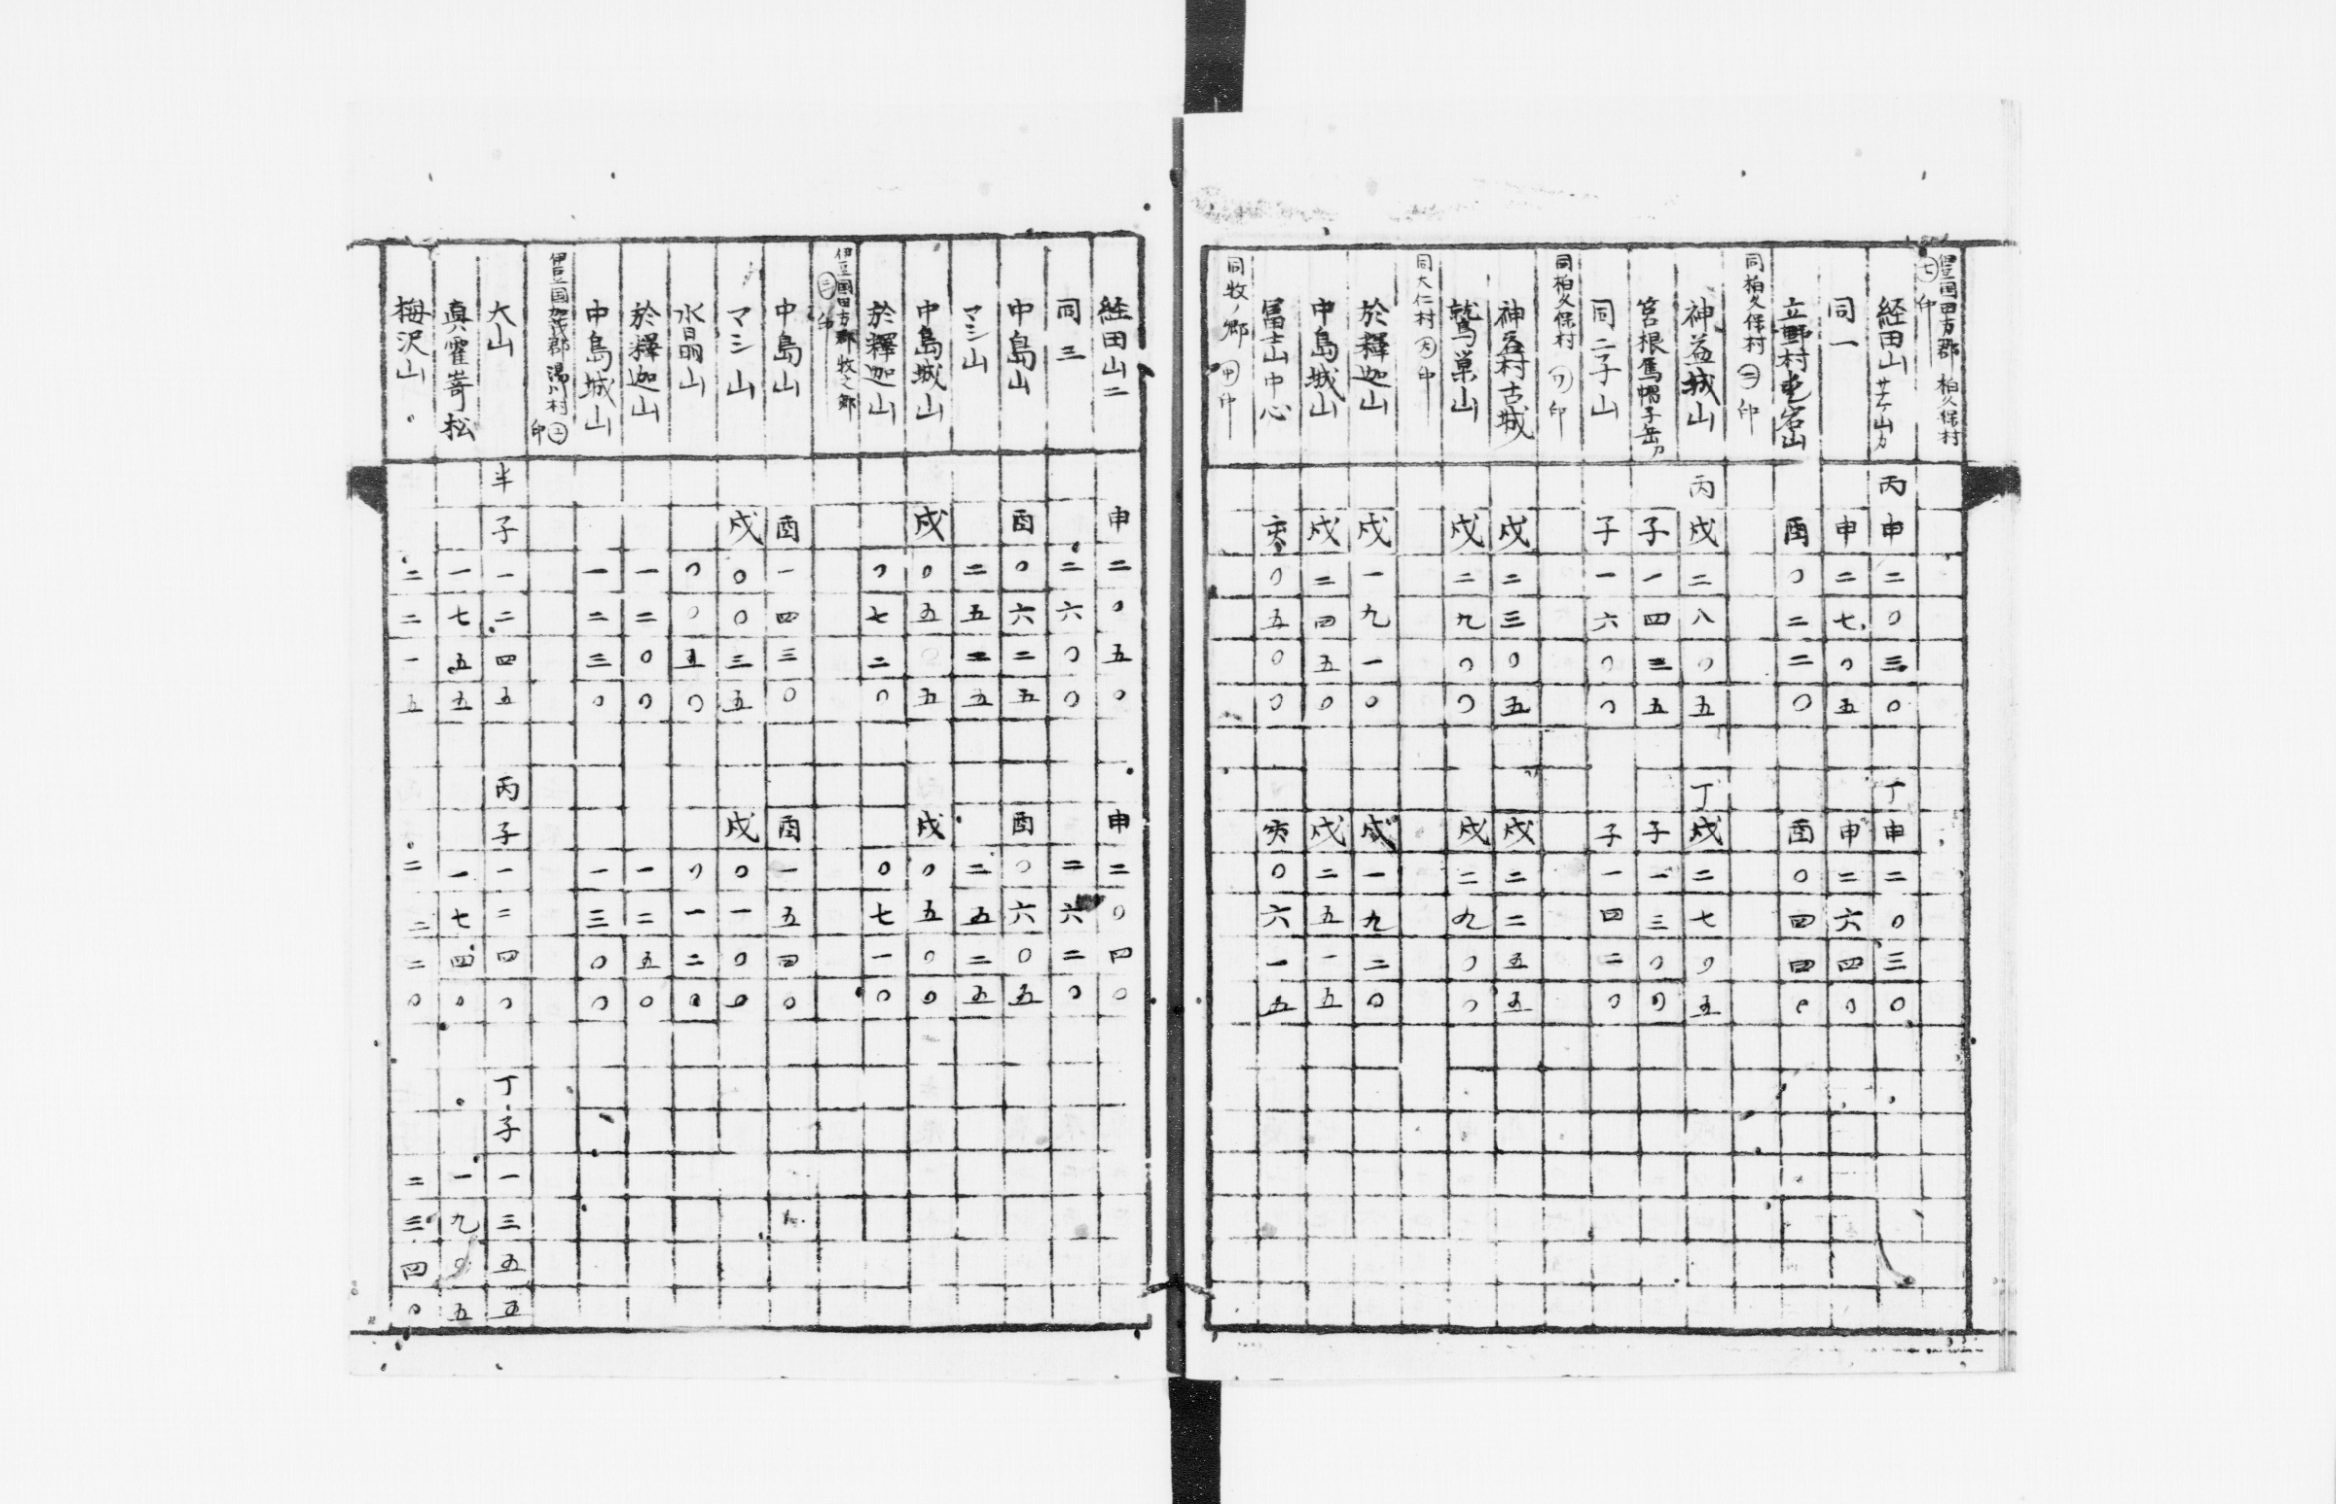 伊豆国田方郡 柏久保村
㊆ 印
経田山 丙申二〇三〇 丁申二〇三〇
同一 申二七〇五 申二六四〇
立野村 酉〇二二〇 酉〇四四〇
同柏久保村 ㊁ 印
神益城山 丙戌二八〇五 丁戌二七〇五
筥根馬帽子岳 子一四三五 子一三〇〇
同二子山 子一六〇〇 子一四二〇
同柏久保村 印
神益村古城 戌二三〇五 戌二二五五
鷲巣山 戌二九〇〇 戌二九〇〇
同大仁村 印
於釋迦山 戌一九一〇 戌一九二〇
中島城山 戌二四五〇 戌二五一五
冨士山中心 亥〇五〇〇 亥〇六一五
同牧ノ郷 ㊥ 印
経田山二 申二〇五〇 申二〇四〇
同三 二六〇〇 二六二〇
中島山 酉〇六二五 酉〇六〇五
マシ山 二五二五 二五二五
中島城山 戌〇五〇五 戌〇五〇〇
於釋迦山 〇七二〇 〇七一〇
伊豆国田方郡 牧之郷
㊁ 印
中島山 酉一四三〇 酉一五四〇
マシ山 戌〇〇三五 戌〇一〇〇
水晶山 〇〇五〇 〇一二〇
於釋迦山 一二〇〇 一二五〇
中島城山 一二三〇 一三〇〇
伊豆国加茂郡 湯川村
印
大山 半子一二四五 丙子一二四〇 丁子一三五五
真霍嵜松 一七五五 一七四〇 一九〇五
梅沢山 二二一五 二二二〇 二三四〇